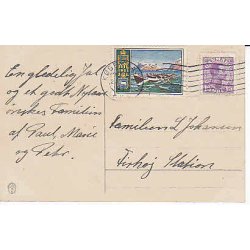 En glædelig Jul
og et godt Nytaar
ønskes Familien
af Paul, Marie
og Peter.
Familien L Johansen
Station